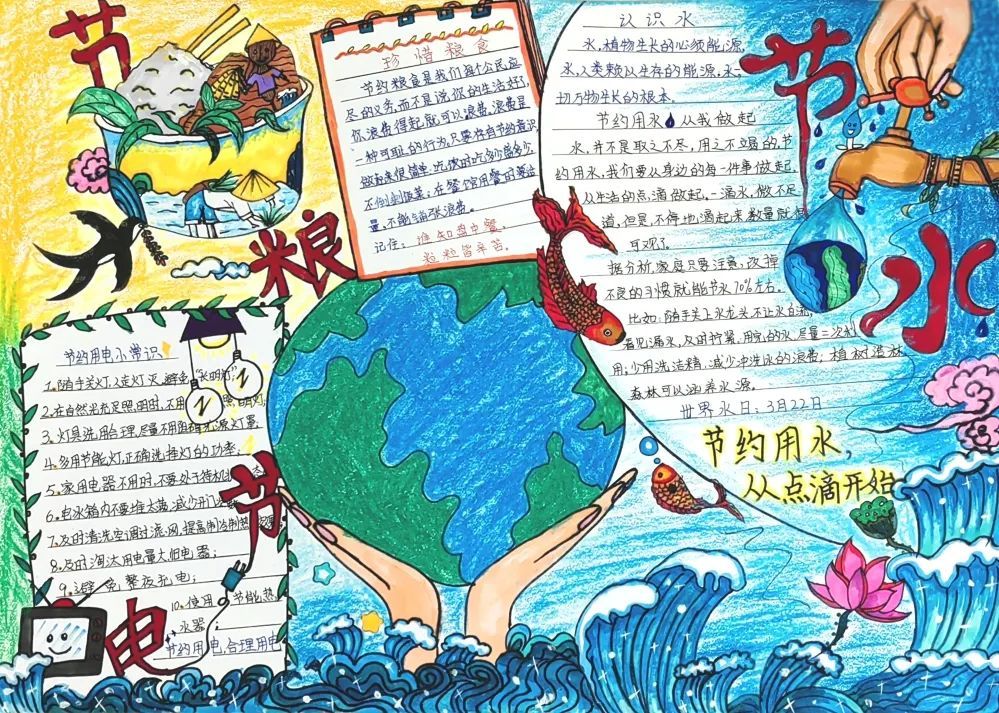 节粮
珍惜粮食
节约粮食是我们每个公民应
尽的义务,而不是说你的生活好了,
你浪费得起就可以浪费,浪费是
一种可耻的行为,只要存有节约意识,
做起来很简单:吃饭时吃多少盛多少,
不倒剩饭菜;在餐馆用餐时点菜适
量,不能铺张浪费。
记住:谁知盘中餐,
粒粒皆辛苦。
认识水
水,植物生长的必须能源,
水,人类赖以生存的能源,水,
切万物生长的根本。
节约用水从我做起
水,并不是取之不尽,用之不竭的,节
约用水,我们要从身边的每一件事做起,
从生活的点滴做起。一滴水,微不足
道,但是,不停地滴起来,数量就很
可观了。
据分析,家庭只要注意,改掉
不良的习惯就能节水70%左右。
比如:随手关上水龙头,不让水白流;
看见漏水,及时拧紧,用
用;少用洗洁精,减少冲洗水的浪费;植树造林,
森林可以涵养水源。
世界水日:3月22日
节约用水,
从点滴开始
节水
节约用电小常识
1.随手关灯,人走灯灭,避免“长明灯”;
2.在自然光充足照明时,不用
3.灯具选用合理,尽量不用
4.多用节能灯,正确选择灯的功率;
5.家用电器不用时,不要处于待机状态
6.电冰箱内不要堆太满,减少开门
7.及时清洗空调过滤网,提高制冷制热
8.及时淘汰用电量大旧电器;
9.避免整夜充电;
10.使用节能热
水器;
节约用电,合理用电
节电